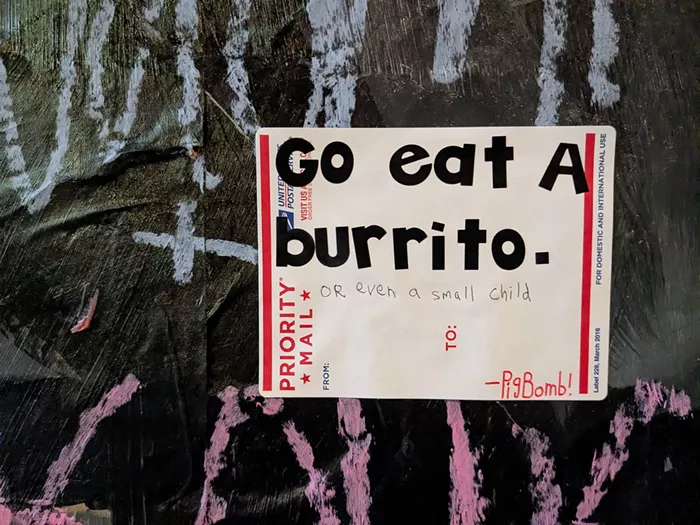 Go eat A
burrito.
OR even a small child
UNITED
POSTA
VISIT US A
ORDER FREE
PRIORITY
★ MAIL ★
FROM:
TO:
—PigBomb!
FOR DOMESTIC AND INTERNATIONAL USE
Label 228, March 2016